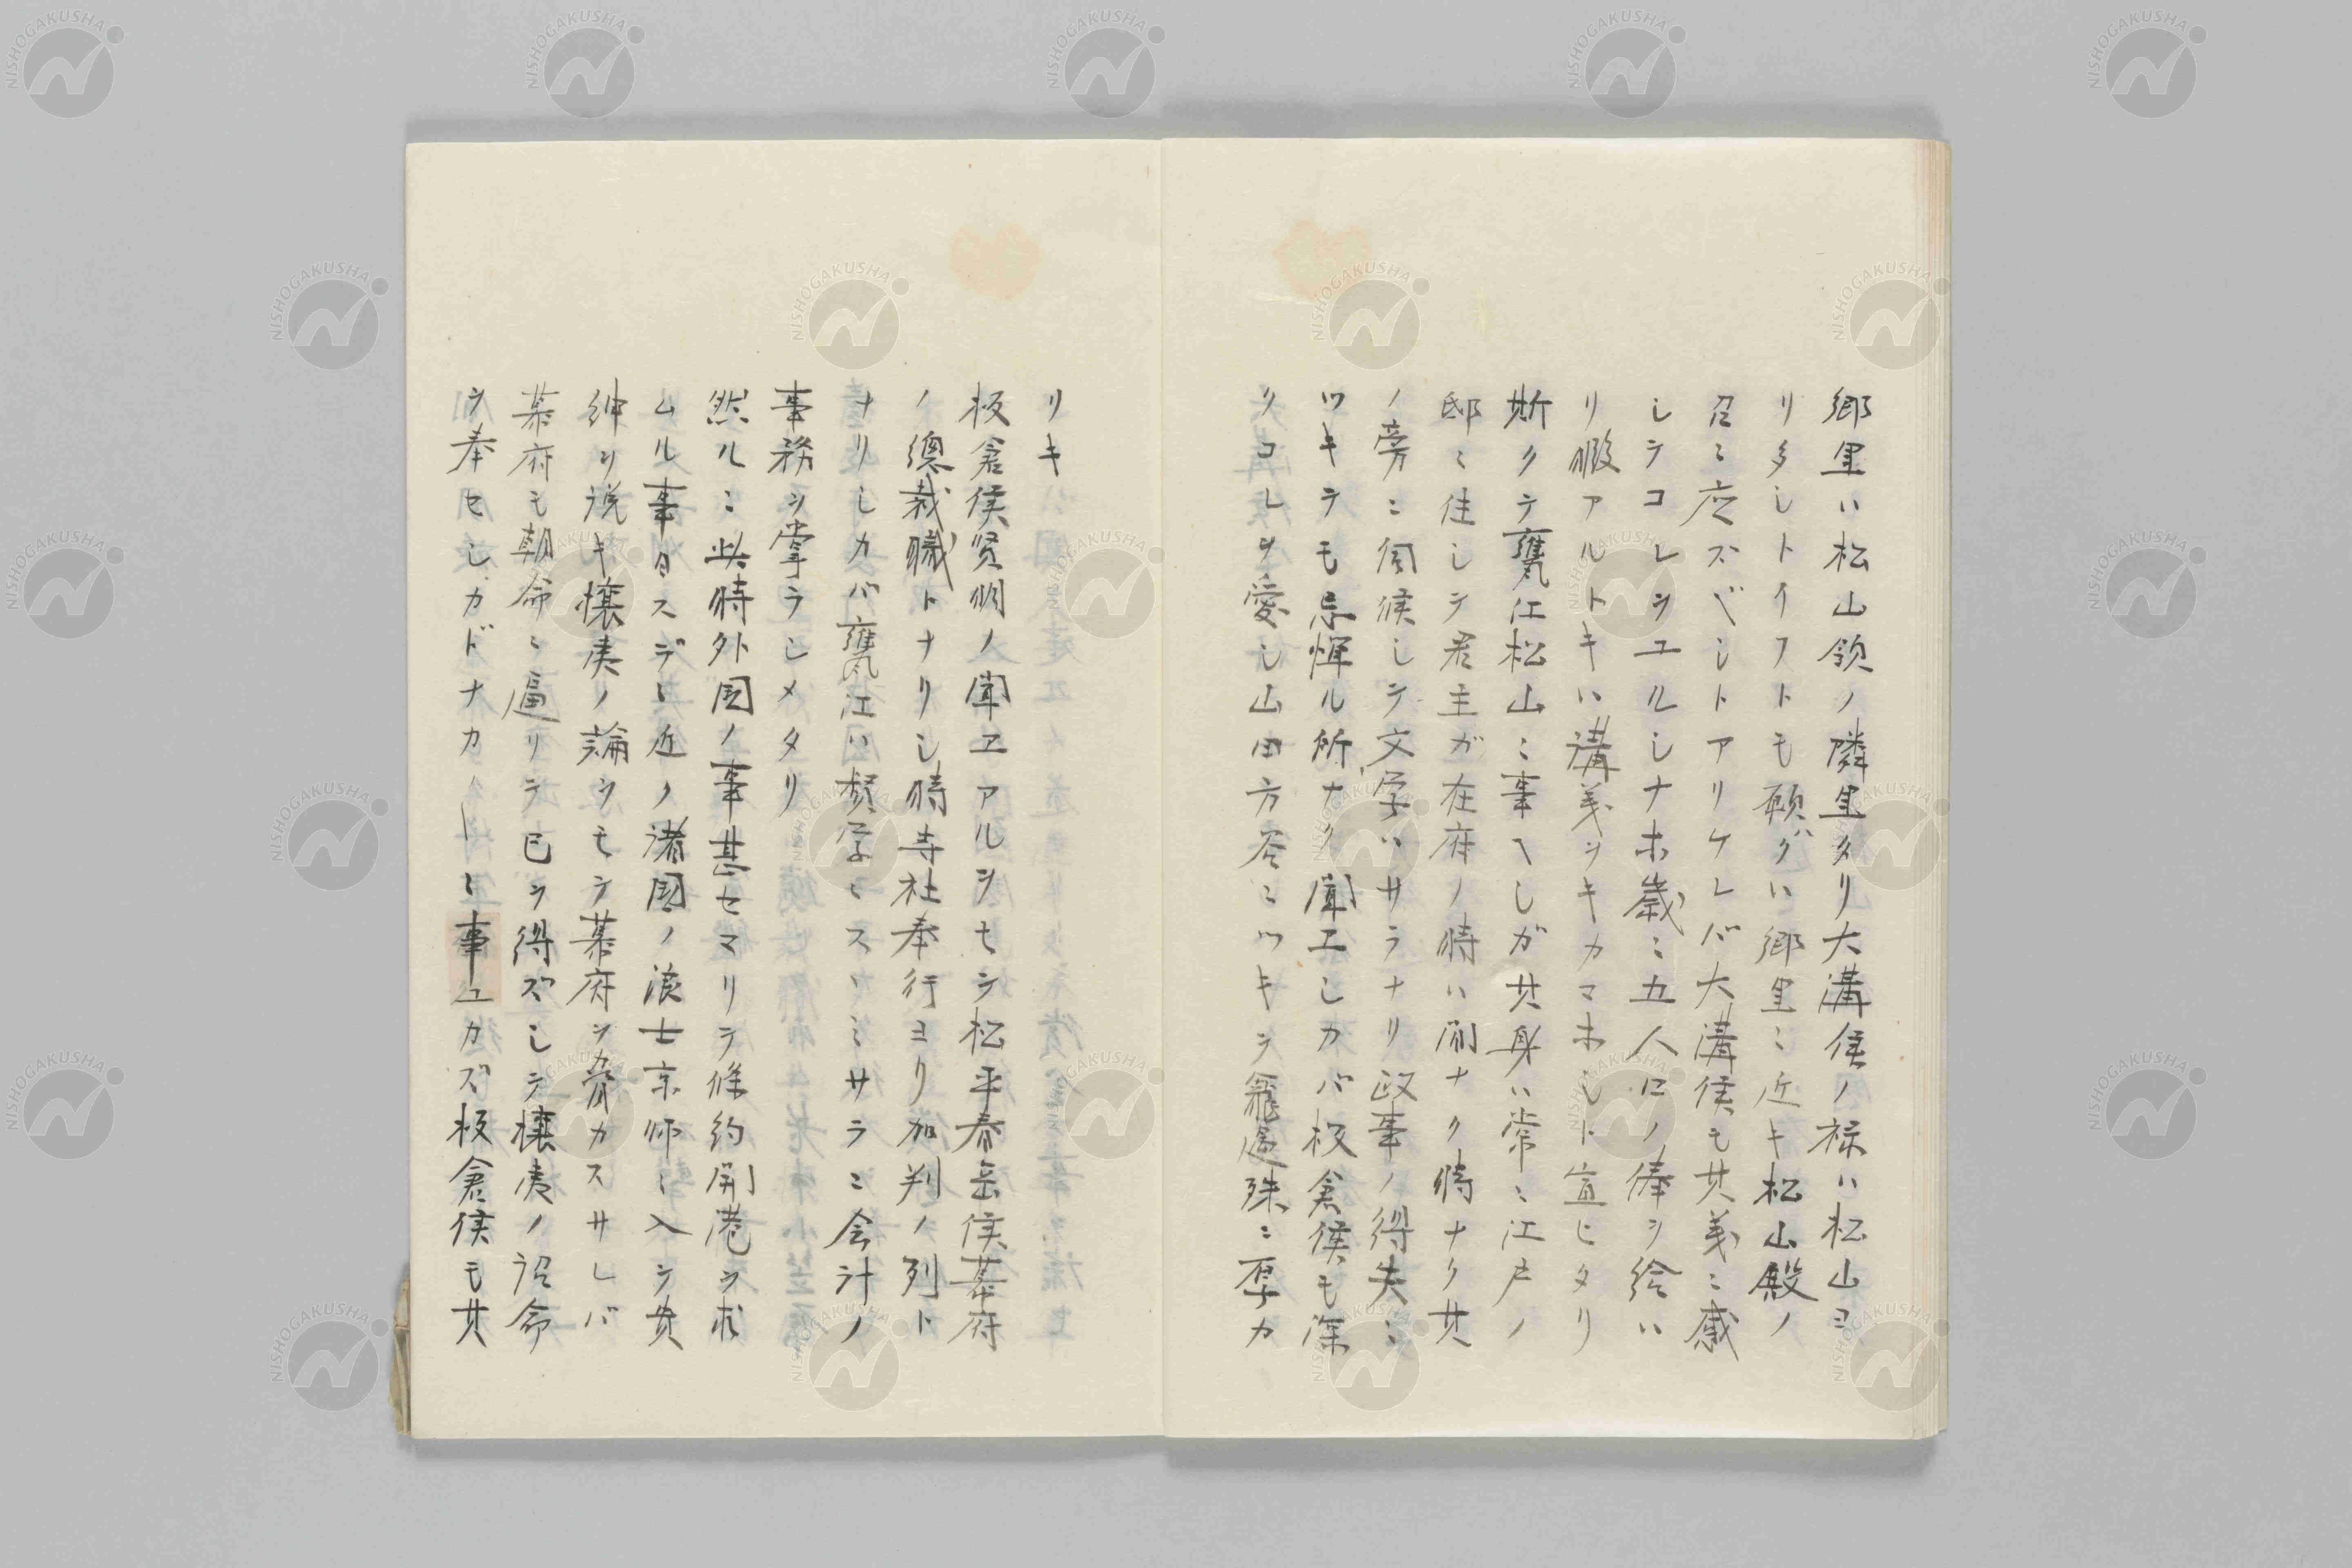 郷里ハ松山領ノ隣里タリ大溝侯ノ禄ハ松山ヨ
リ多シトイフトモ願グハ郷里ニ近キ松山殿ノ
召ニ応ズベシトアリケレバ大溝侯モ其義ニ感
シテコレヲユルシナホ歳ニ五人口ノ俸ヲ給ハ
リ暇アルトキハ講義ヲキカマホシト宣ヒタリ
斯クテ甕江松山ニ事ヘシガ其身ハ常ニ江戸ノ
邸ニ住シテ君主ガ在府ノ時ハ間ナク時ナク其
ノ旁ニ伺候シテ文学ハサラナリ政事ノ得失ニ
ツキテモ忌憚ル所ナク聞エシカバ板倉侯モ深
クコレヲ愛シ山田方谷ニツキテ寵遇殊ニ厚カ
リキ
板倉侯賢明ノ聞エアルヲモテ松平春岳侯幕府
ノ總裁職トナリシ時寺社奉行ヨリ加判ノ列ト
ナリシカバ甕江ハ督学ニスヽミサラニ会計ノ
事務ヲ掌ラシメタリ
然ルニ此時外国ノ事甚セマリテ條約開港ヲ求
ムル事日スデニ近ノ諸國ノ浪士京師ニ入テ貴
紳ヲ説キ攘夷ノ論ヲモテ幕府ヲ脅カスサレバ
幕府モ朝命ニ逼リテ已ヲ得ズシテ攘夷ノ詔命
ヲ奉セシカドナカ〱ニ事ユカズ板倉侯モ其
NISHOGAKUSHA